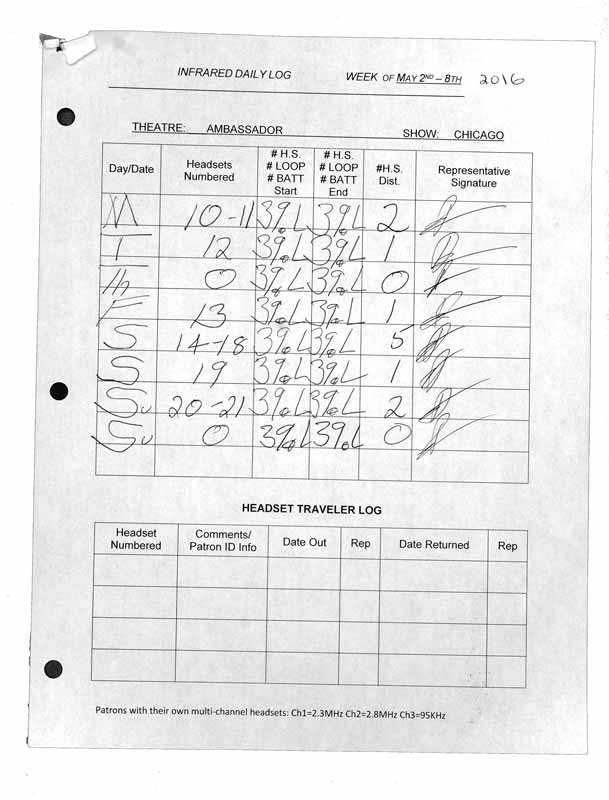 INFRARED DAILY LOG WEEK OF MAY 2ND – 8TH 2016
THEATRE: AMBASSADOR SHOW: CHICAGO
Day/Date Headsets Numbered # H.S. # LOOP # BATT Start # H.S. # LOOP # BATT End #H.S. Dist. Representative Signature
M 10-11 39 L 39 L 2
T 12 39 L 39 L 1
Th 0 39 L 39 L 0
F 13 39 L 39 L 1
S 14-18 39 L 39 L 5
S 19 39 L 39 L 1
Su 20-21 39 L 39 L 2
Su 0 39 L 39 L 0
HEADSET TRAVELER LOG
Headset Numbered Comments/ Patron ID Info Date Out Rep Date Returned Rep
Patrons with their own multi-channel headsets: Ch1=2.3MHz Ch2=2.8MHz Ch3=95KHz